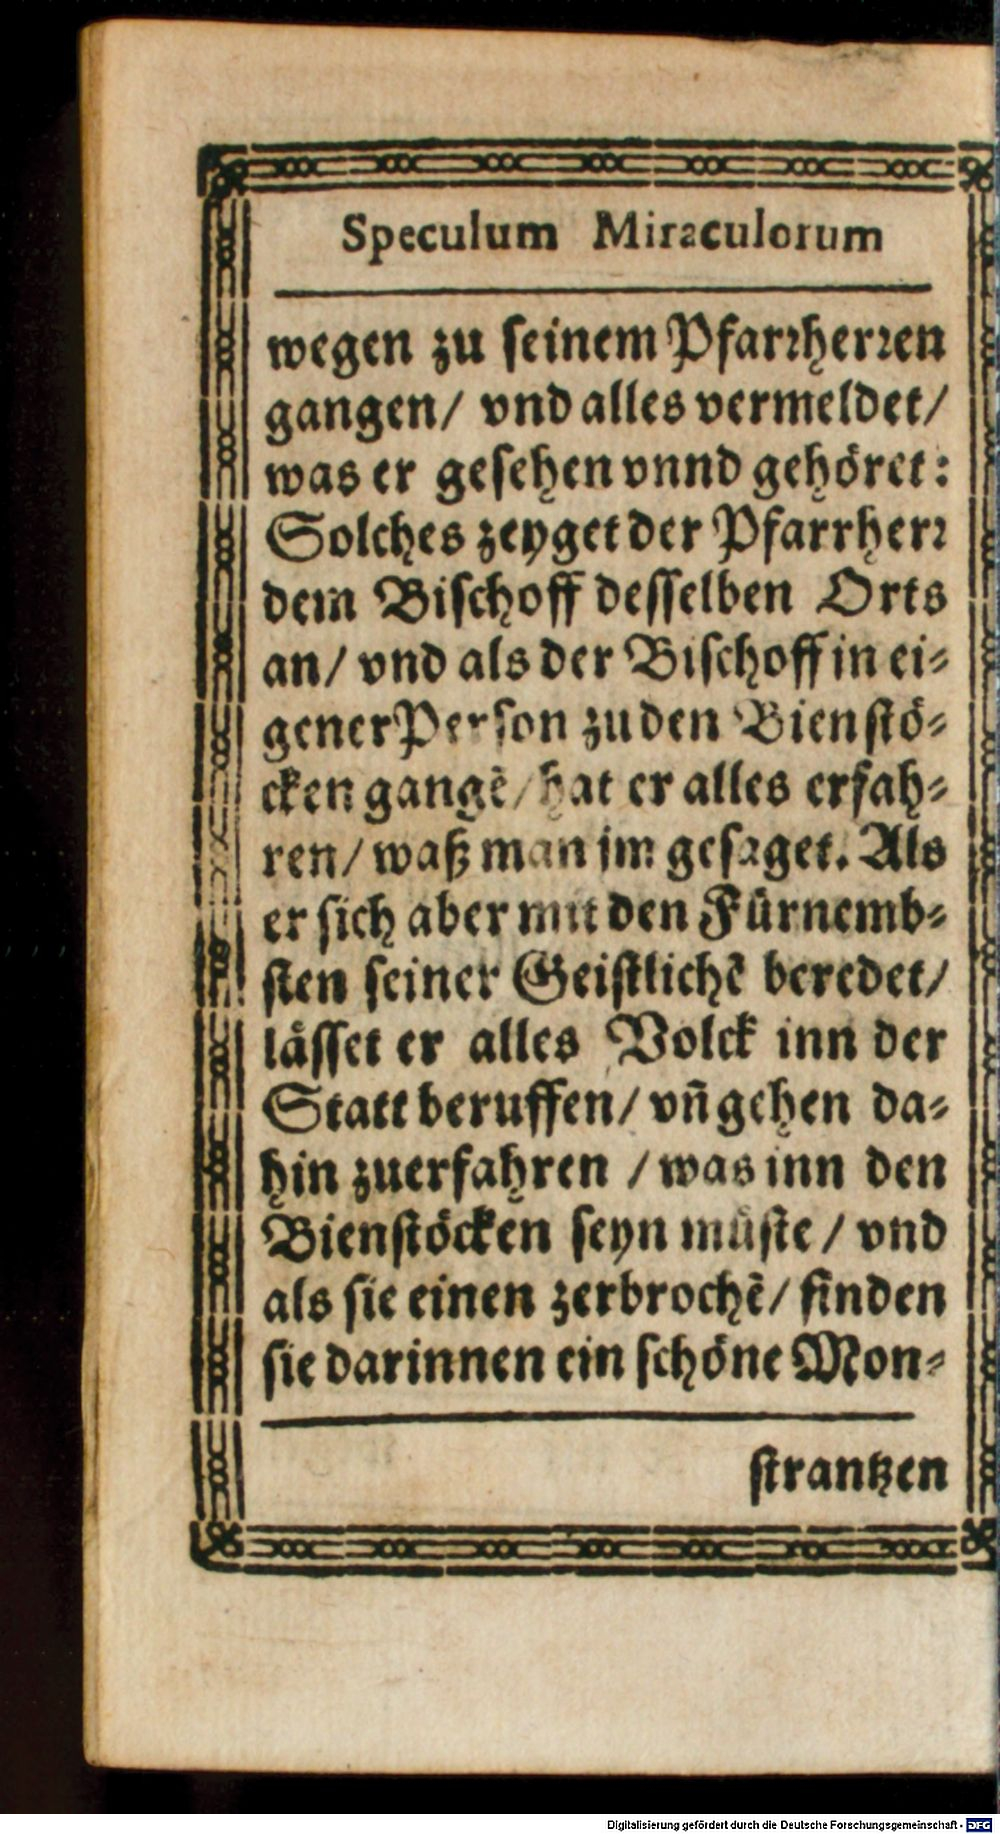 Speculum Miraculorum
wegen zu seinem Pfarꝛherꝛen
gangen/ vnd alles vermeldet/
was er gesehen vnnd gehöret:
Solches zeyget der Pfarrherꝛ
dem Bischoff desselben Orts
an/ vnd als der Bischoff in ei-
gener Person zu den Bienstö-
cken gangẽ/ hat er alles erfah-
ren/ waß man jm gesaget. Als
er sich aber mit den Fürnemb-
sten seiner Geistlichẽ beredet/
lässet er alles Volck inn der
Statt beruffen/ vñ gehen da-
hin zuerfahren / was inn den
Bienstöcken seyn müste / vnd
als sie einen zerbrochẽ/ finden
sie darinnen ein schöne Mon-
strantzen
Digitalisierung gefördert durch die Deutsche Forschungsgemeinschaft - DFG